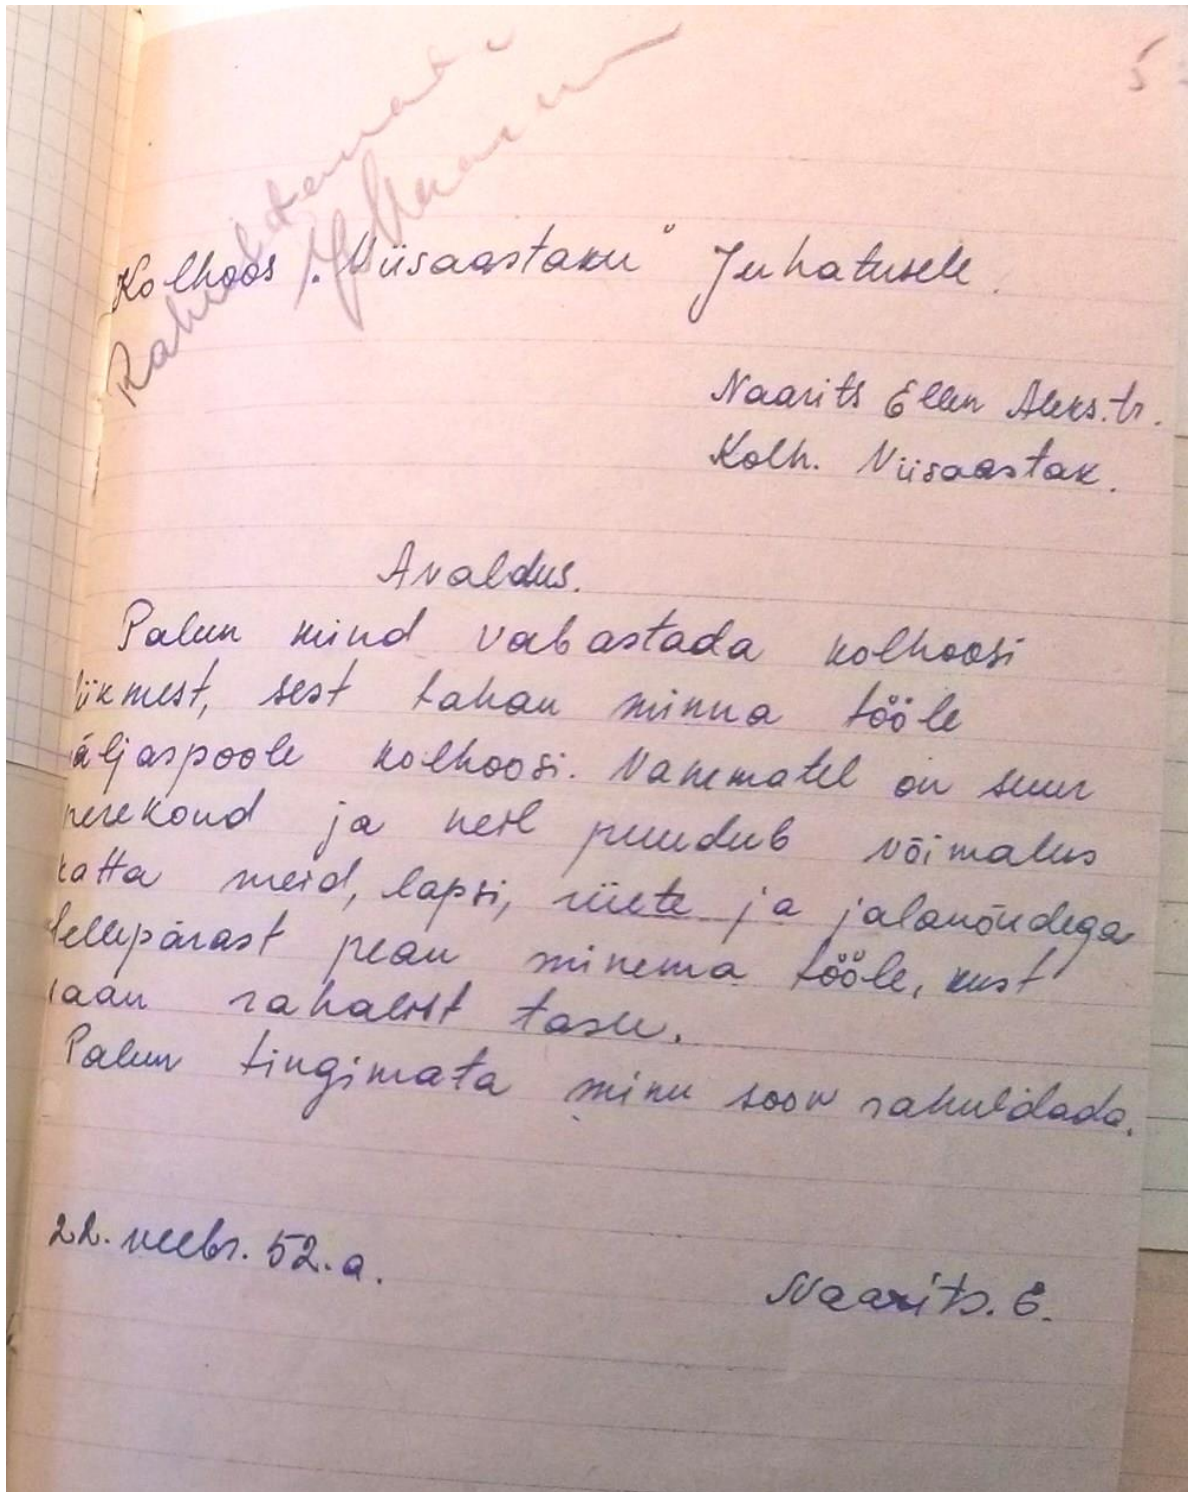 5
Rahuldamata
Kolhoos „Viisaastaku" Juhatusele.
Naarits Ellen Aleks. tr.
Kolh. Viisaastak.
Avaldus.
Palun mind vabastada kolhoosi
liikmest, sest tahan minna tööle
äljaspoole kolhoosi. Vanematel on suur
perekond ja neil puudub võimalus
katta meid, lapsi, riiete ja jalanõudega
Sellepärast pean minema tööle, kust
saan rahalist tasu.
Palun tingimata minu soov rahuldada.
22. veebr. 52. a.
Naarits. E.